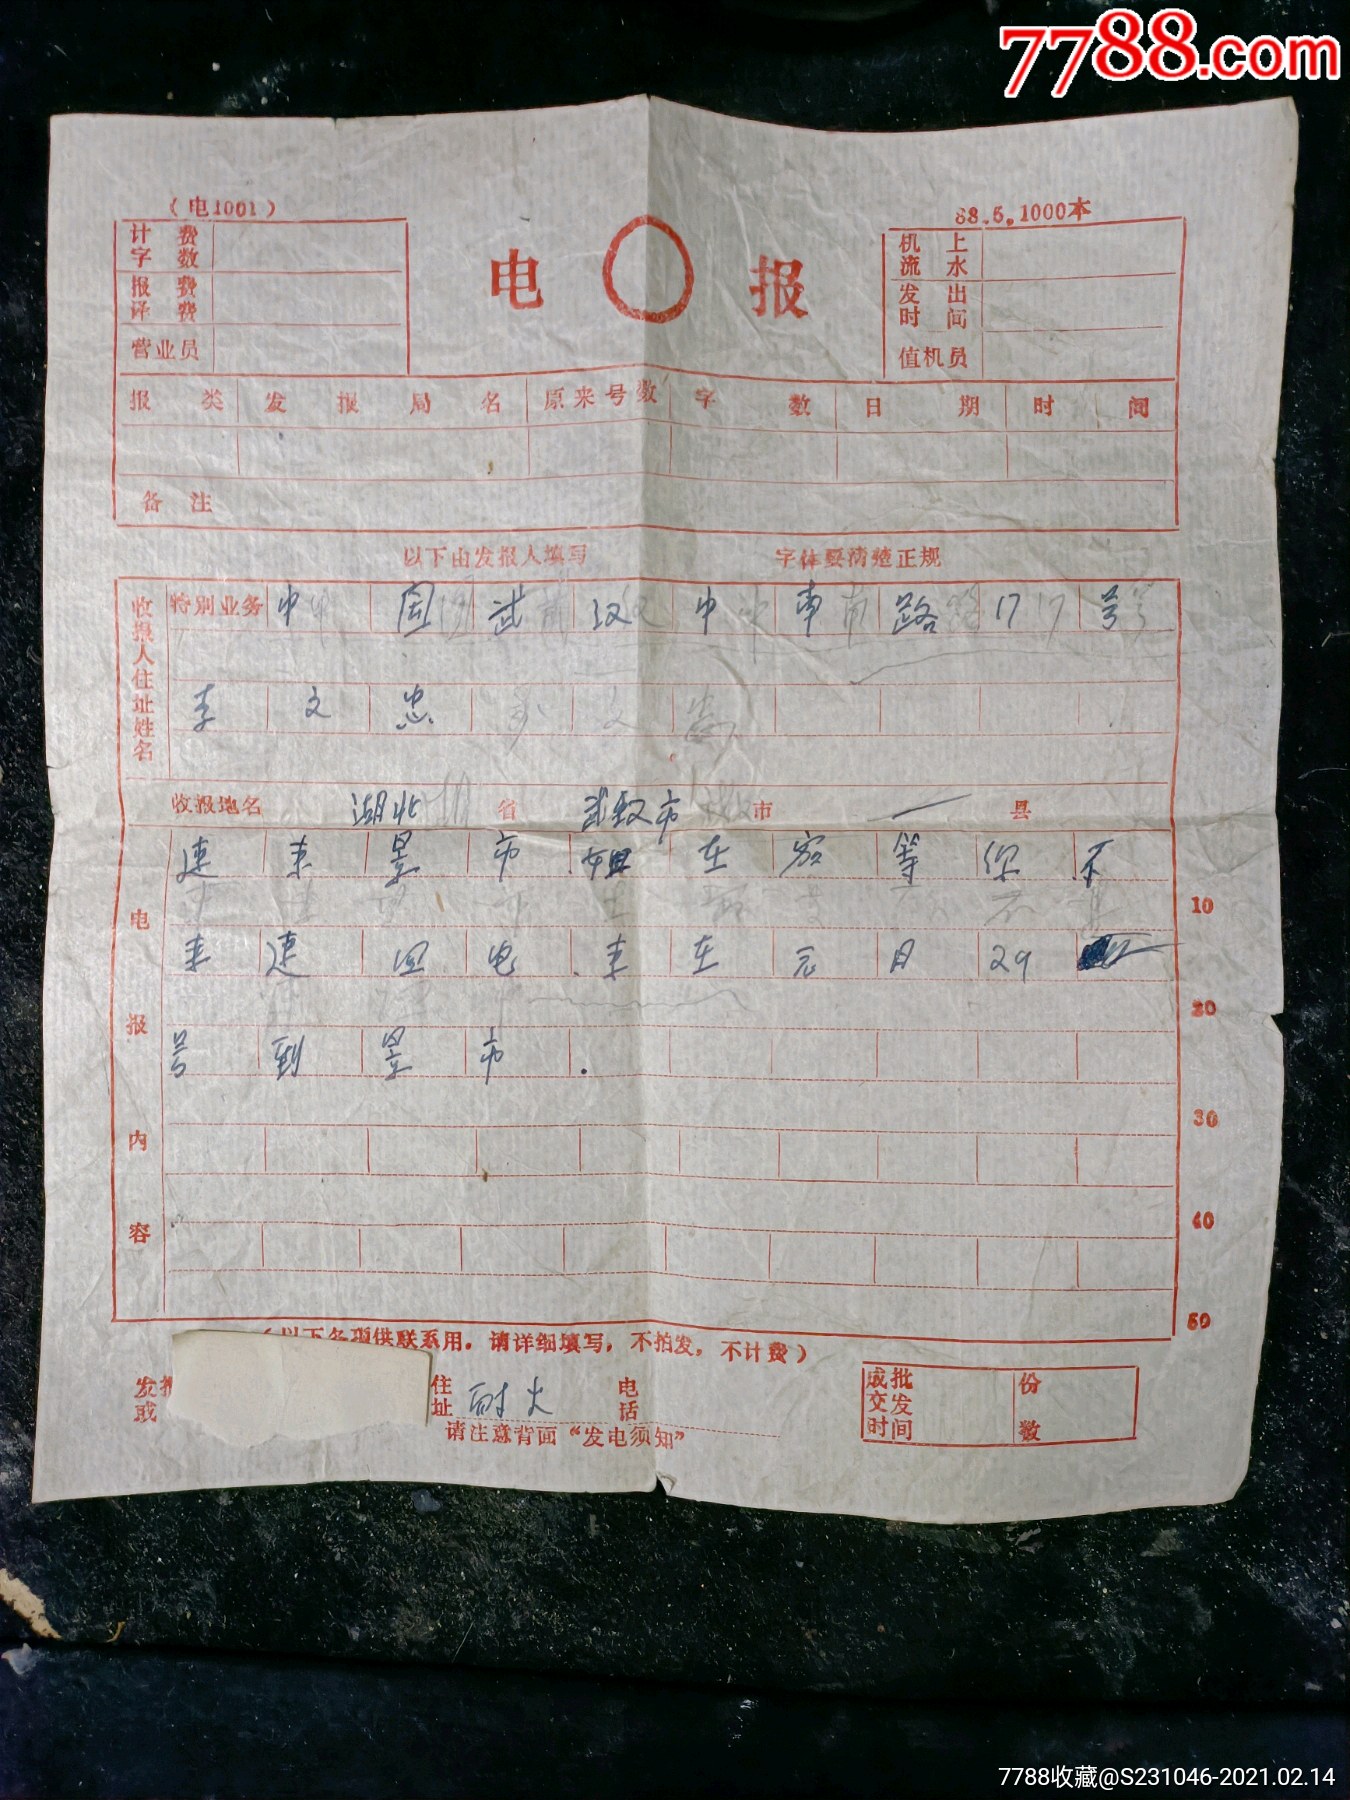 7788.com
（电1001）
88.5.1000本
计费字数
报费译费
营业员
电 报
机上流水
发出时间
值机员
报类 发报局名 原来号数 字数 日期 时间
备注
以下由发报人填写 字体要清楚正规
收报人住址姓名
特别业务 中国武汉中南路17号
李文忠
收报地名 湖北省 武汉市市 一 县
电报内容
速来昱市姐在家等你不
10
来速回电.来在元月29
20
号到昱市.
30
40
50
（以下各项供联系用，请详细填写，不拍发，不计费）
发报
或
住址 耐火 电话
请注意背面“发电须知”
成批交发时间 份数
7788收藏@S231046-2021.02.14